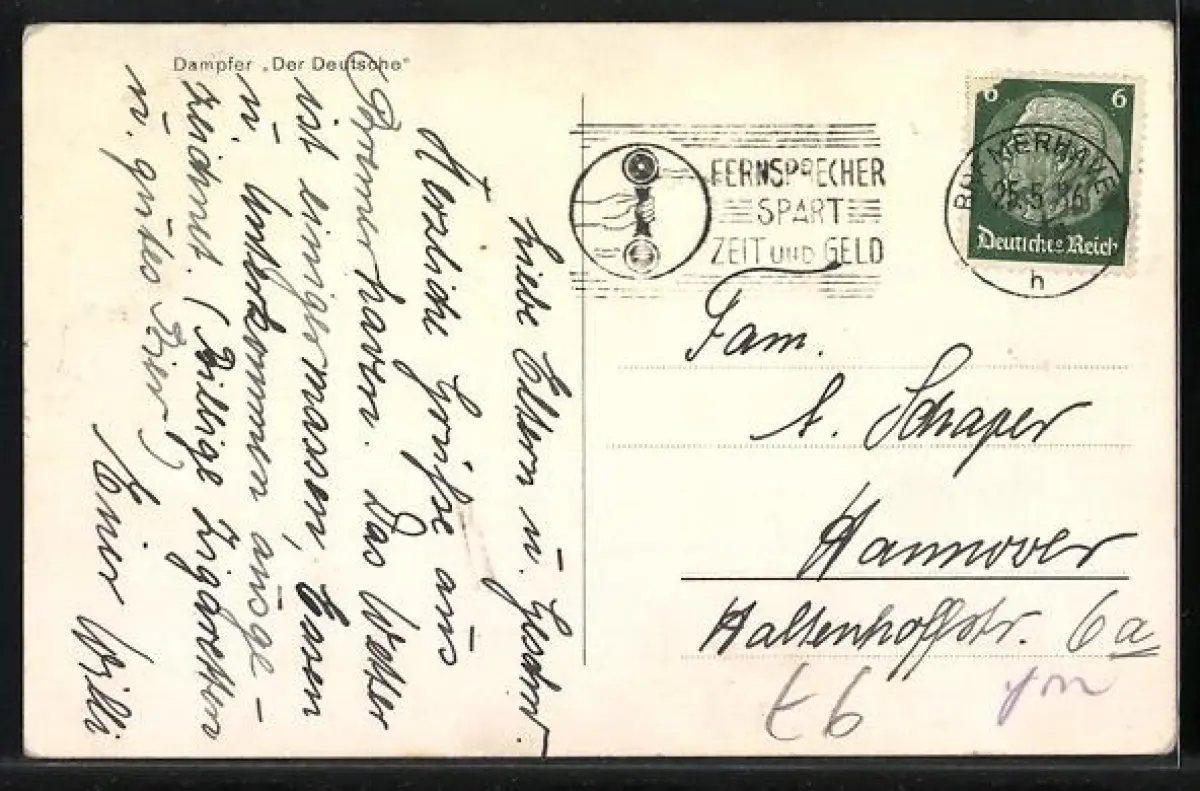 Dampfer „Der Deutsche"
Liebe Eltern u. Geschw.
Herzliche Grüße aus
Bremerhaven. Das Wetter
ist einigermassen, Essen
u. Unterkommen ausge-
zeichnet. (Billige Zigaretten
u. gutes Bier)
Euer Willi
FERNSPRECHER
SPART
ZEIT UND GELD
6 6
Deutsches Reich
25.5.36
h
Fam.
A. Schaper
Hannover
Haltenhoffstr. 6a